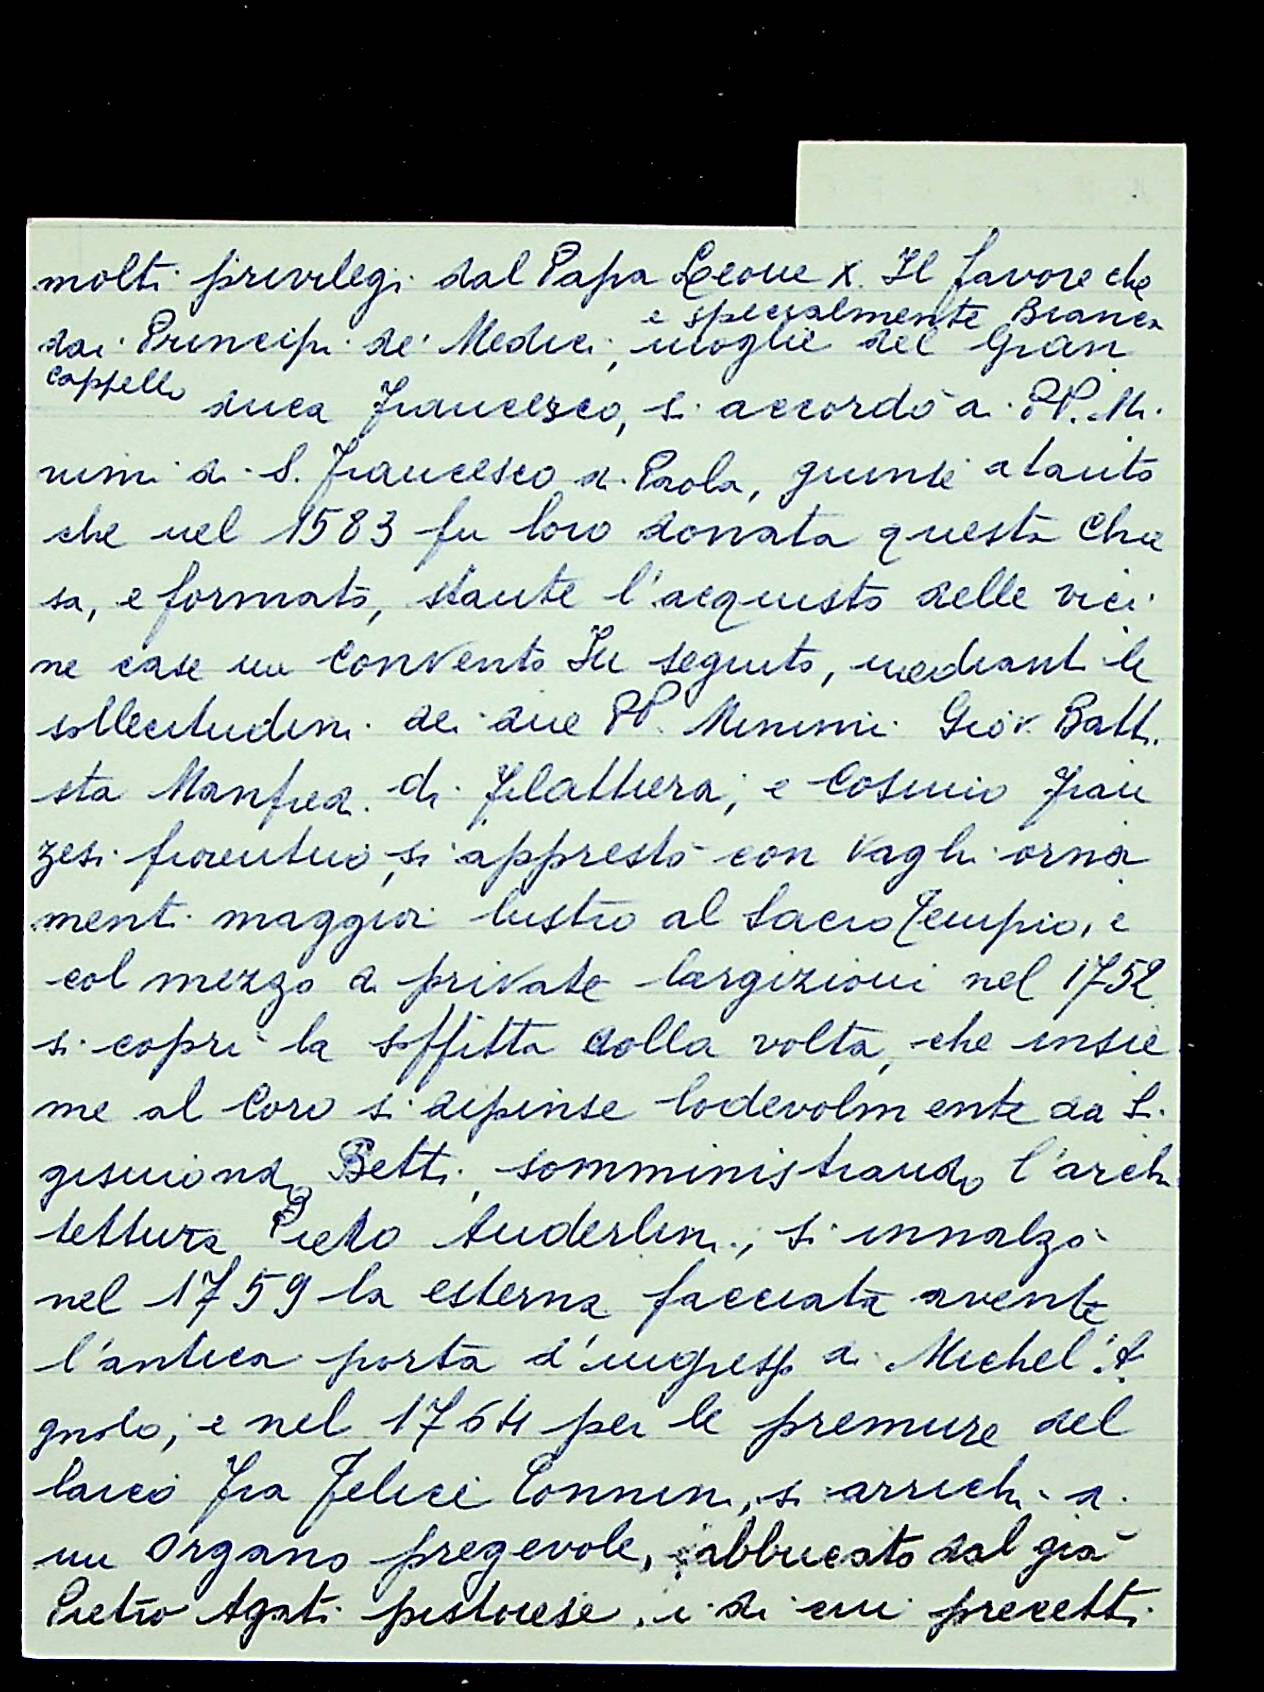 molti privilegi dal Papa Leone X. Il favore che
e specialmente Bianca
dai Principi de' Medici, moglie del Gran
Cappello
duca Francesco, si accordò ai PP. Mi
nimi di S. Francesco di Paola, giunse a tanto
che nel 1583 fu loro donata questa Chie
sa, e formato, stante l'acquisto delle vici
ne case un Convento In seguito, mediant le
sollecitudini dei due PP. Minimi Giov. Batti
sta Manfredi di Filattiera, e Cosimo Fran
zesi fiorentino, si apprestò con vaghi orna
menti maggior lustro al Sacro Tempio, e
col mezzo di private largizioni nel 1752
si coprì la soffitta colla volta, che insie
me al Coro si dipinse lodevolmente da Si
gismondo Betti, somministrando l'archi
tettura Pietro Anderlini, si innalzò
nel 1759 la esterna facciata avente
l'antica porta d'ingresso di Michel'A
gnolo, e nel 1764 per le premure del
laico Fra Felice Connini, si arricchì di
un Organo pregevole, fabbricato dal già
Pietro Agati pistoiese, i di cui precetti